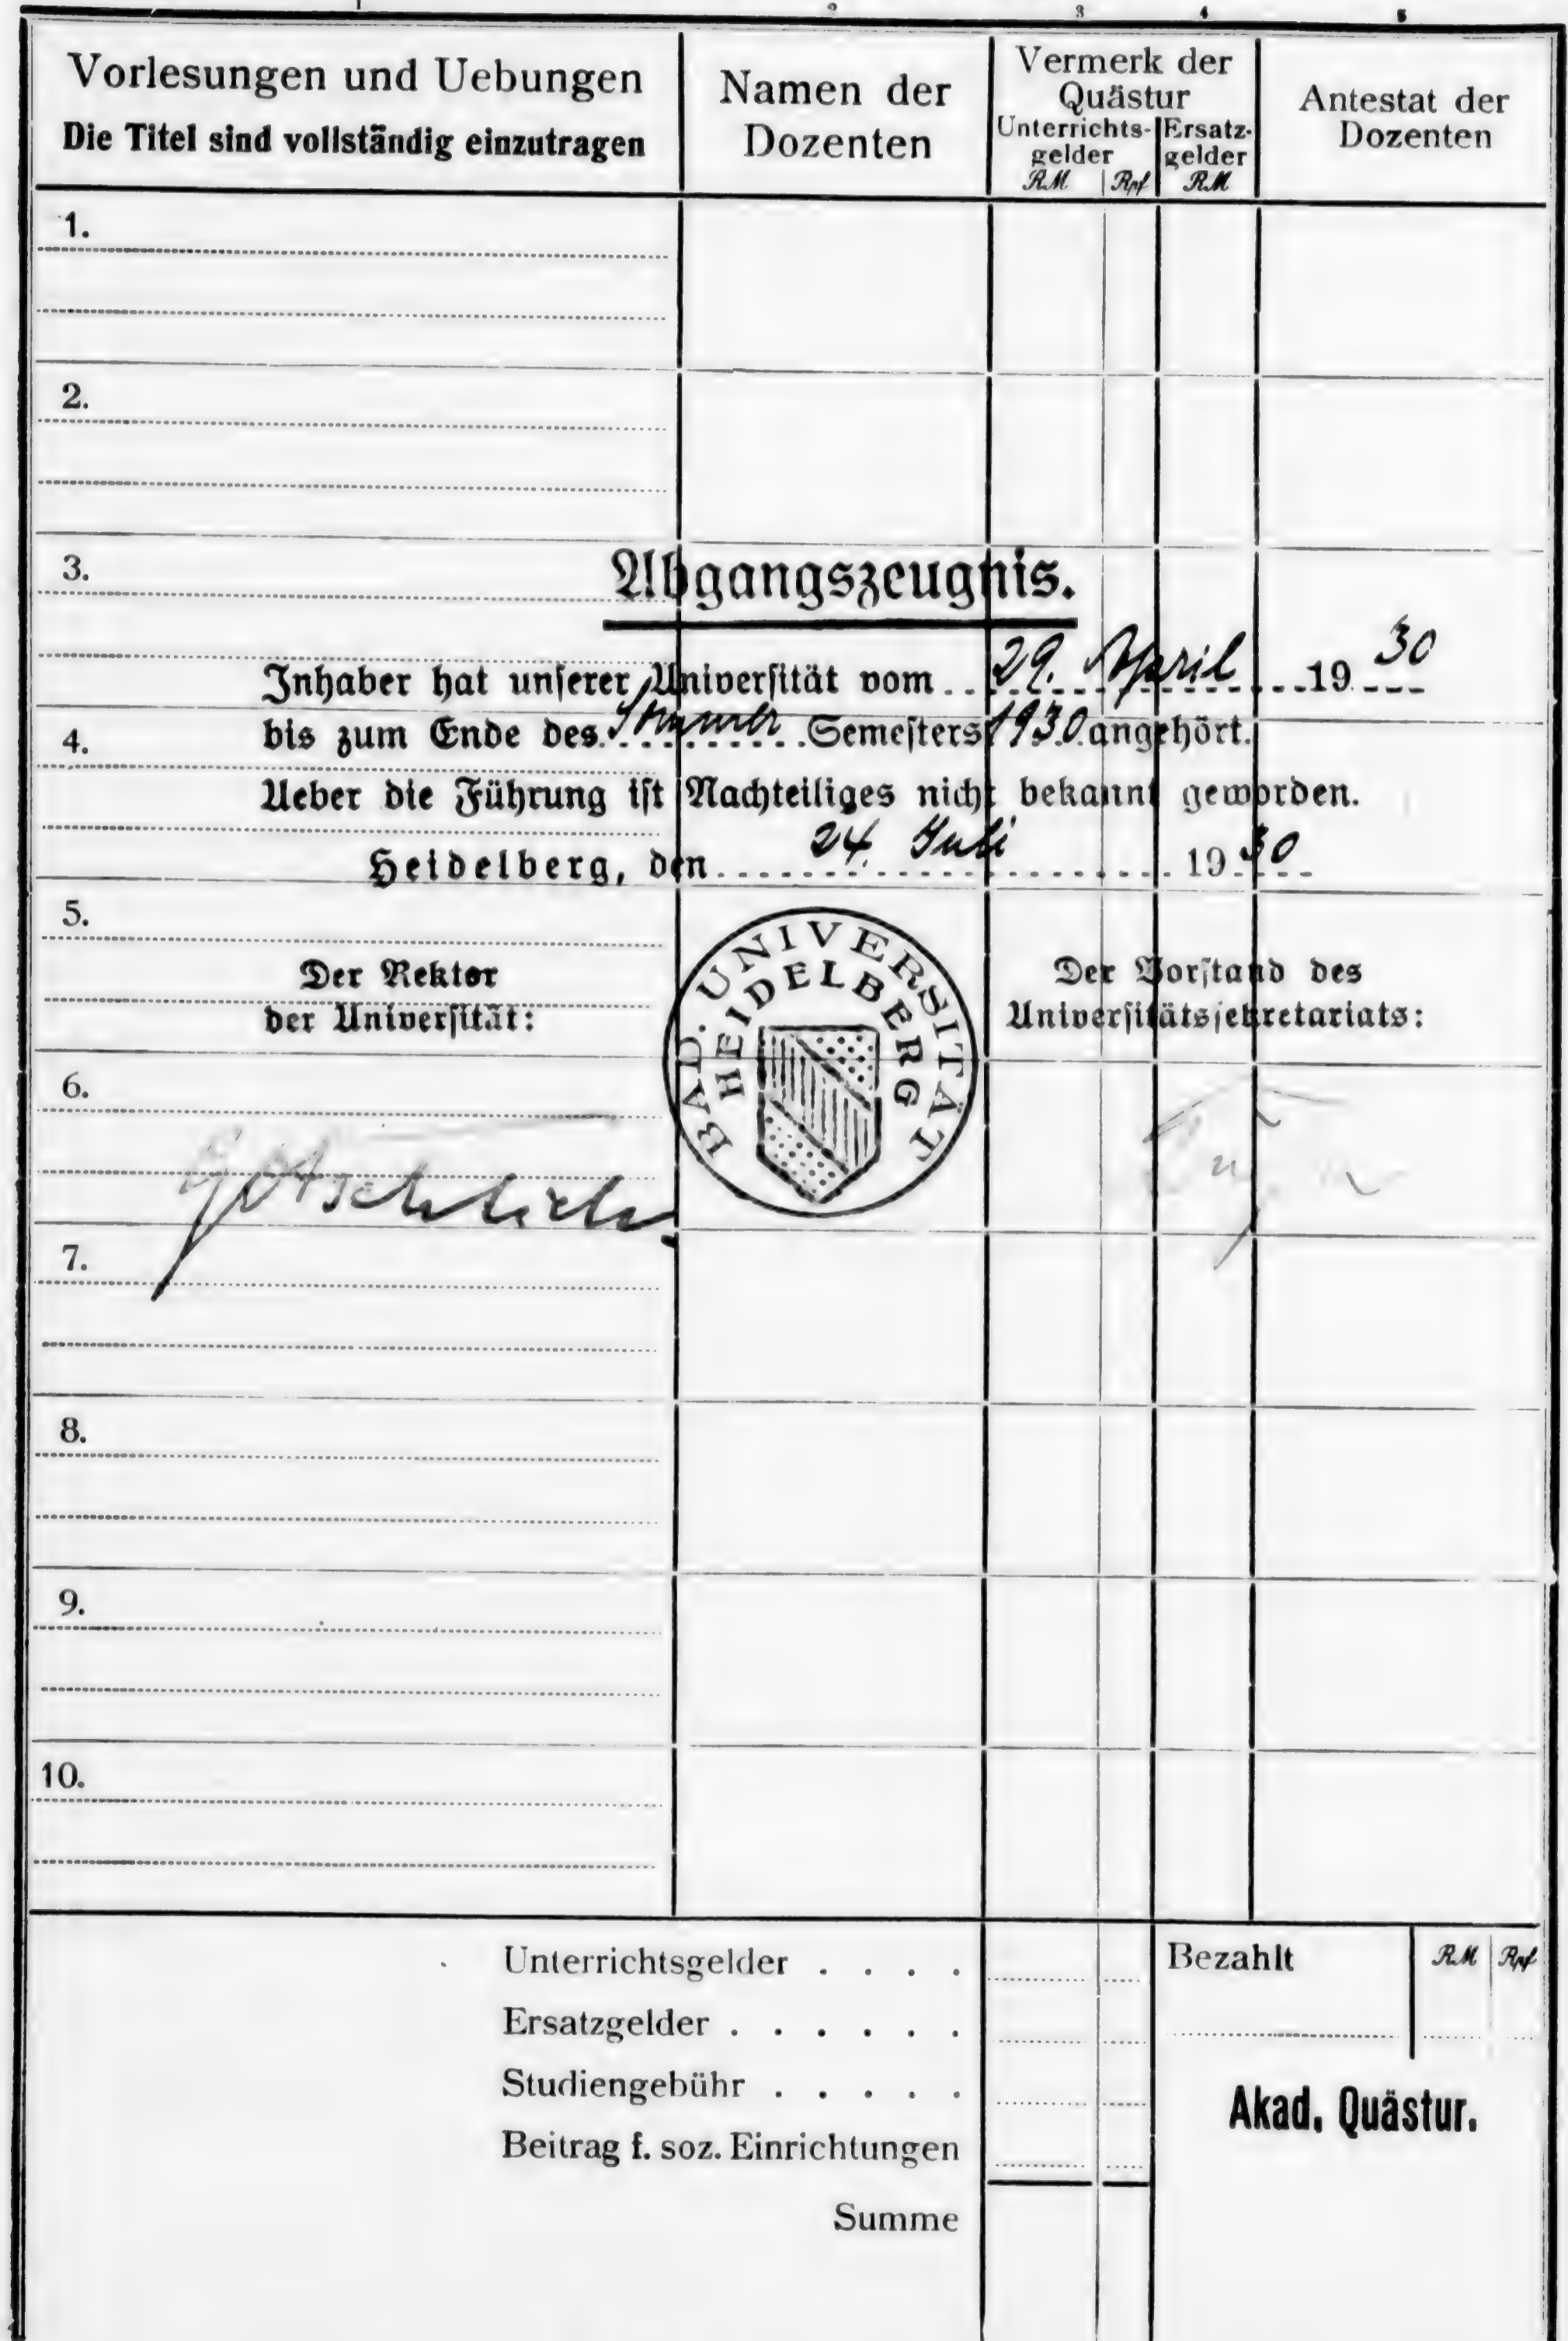 1 2 3 4 5
Vorlesungen und Uebungen
Die Titel sind vollständig einzutragen
Namen der
Dozenten
Vermerk der
Quästur
Unterrichts-
gelder
RM Rpf
Ersatz-
gelder
RM
Antestat der
Dozenten
1.
2.
3.
Abgangszeugnis.
Inhaber hat unserer Universität vom 29. April 1930
bis zum Ende des Sommer Semesters 1930 angehört.
4.
Ueber die Führung ist Nachteiliges nicht bekannt geworden.
Heidelberg, den 24. Juli 1930
5.
Der Rektor
der Universität:
BAD. UNIVERSITÄT
HEIDELBERG
Der Vorstand des
Universitätssekretariats:
6.
Gotschlich
7.
8.
9.
10.
Unterrichtsgelder . . . .
Ersatzgelder . . . . . .
Studiengebühr . . . . .
Beitrag f. soz. Einrichtungen
Summe
Bezahlt RM Rpf
Akad. Quästur.